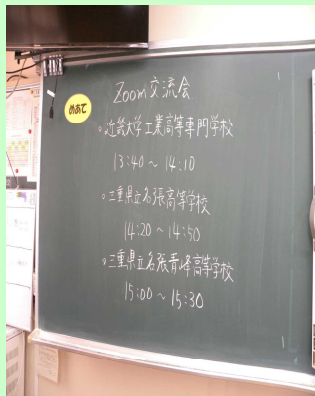 Zoom交流会
めあて
○近畿大学工業高等専門学校
13:40～14:10
○三重県立名張高等学校
14:20～14:50
○三重県立名張青峰高等学校
15:00～15:30